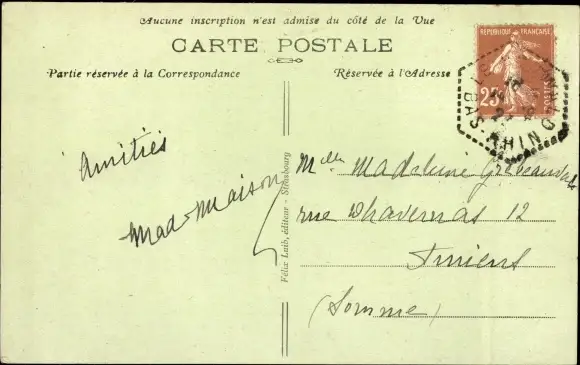 Aucune inscription n'est admise du côté de la Vue
CARTE POSTALE
Partie réservée à la Correspondance
Réservée à l'Adresse
REPUBLIQUE FRANÇAISE
25c
POSTES
BAS-RHIN
Amitiés
Mad Maison
Félix Luib, éditeur - Strasbourg
Mlle Madeleine
rue Dhavernas 12
Amiens
(Somme)